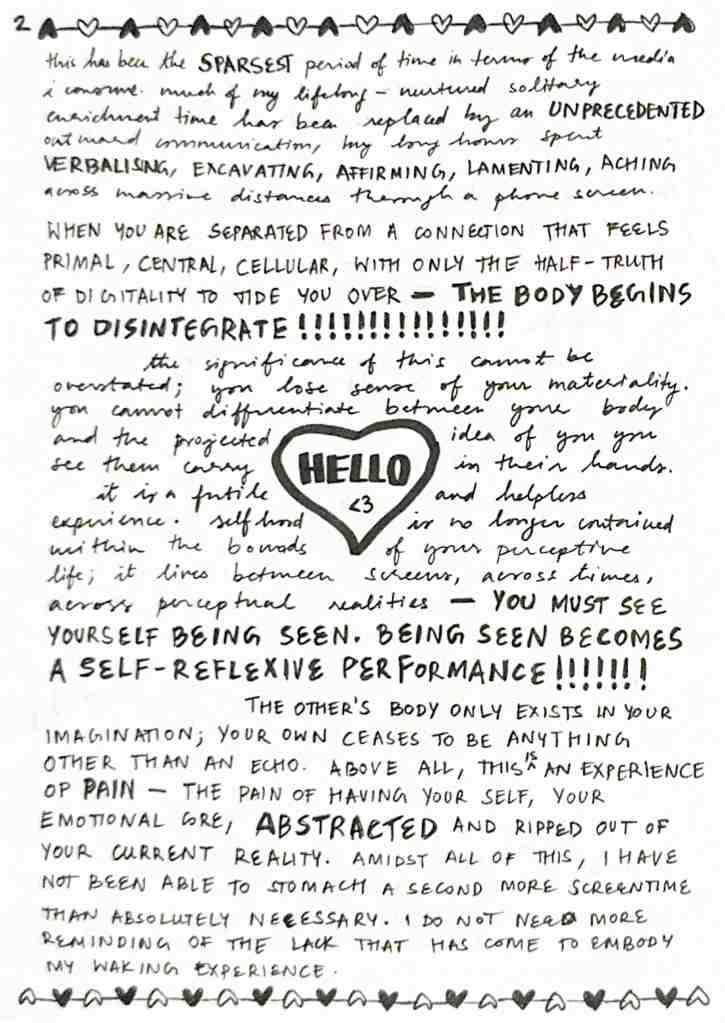 2
this has been the SPARSEST period of time in terms of the media
i consume. much of my lifelong – nurtured solitary
enrichment time has been replaced by an UNPRECEDENTED
outward communication, my long hours spent
VERBALISING, EXCAVATING, AFFIRMING, LAMENTING, ACHING
across massive distances through a phone screen.
WHEN YOU ARE SEPARATED FROM A CONNECTION THAT FEELS
PRIMAL, CENTRAL, CELLULAR, WITH ONLY THE HALF-TRUTH
OF DIGITALITY TO TIDE YOU OVER — THE BODY BEGINS
TO DISINTEGRATE !!!!!!!!!!!!!!!
the significance of this cannot be
overstated; you lose sense of your materiality.
you cannot differentiate between your body
and the projected idea of you you
see them carry in their hands.
HELLO
<3
it is a futile and helpless
experience. selfhood is no longer contained
within the bounds of your perceptive
life; it lives between screens, across times,
across perceptual realities — YOU MUST SEE
YOURSELF BEING SEEN. BEING SEEN BECOMES
A SELF-REFLEXIVE PERFORMANCE !!!!!!!
THE OTHER'S BODY ONLY EXISTS IN YOUR
IMAGINATION; YOUR OWN CEASES TO BE ANYTHING
OTHER THAN AN ECHO. ABOVE ALL, THIS IS AN EXPERIENCE
OF PAIN — THE PAIN OF HAVING YOUR SELF, YOUR
EMOTIONAL CORE, ABSTRACTED AND RIPPED OUT OF
YOUR CURRENT REALITY. AMIDST ALL OF THIS, I HAVE
NOT BEEN ABLE TO STOMACH A SECOND MORE SCREENTIME
THAN ABSOLUTELY NECESSARY. I DO NOT NEED MORE
REMINDING OF THE LACK THAT HAS COME TO EMBODY
MY WAKING EXPERIENCE.